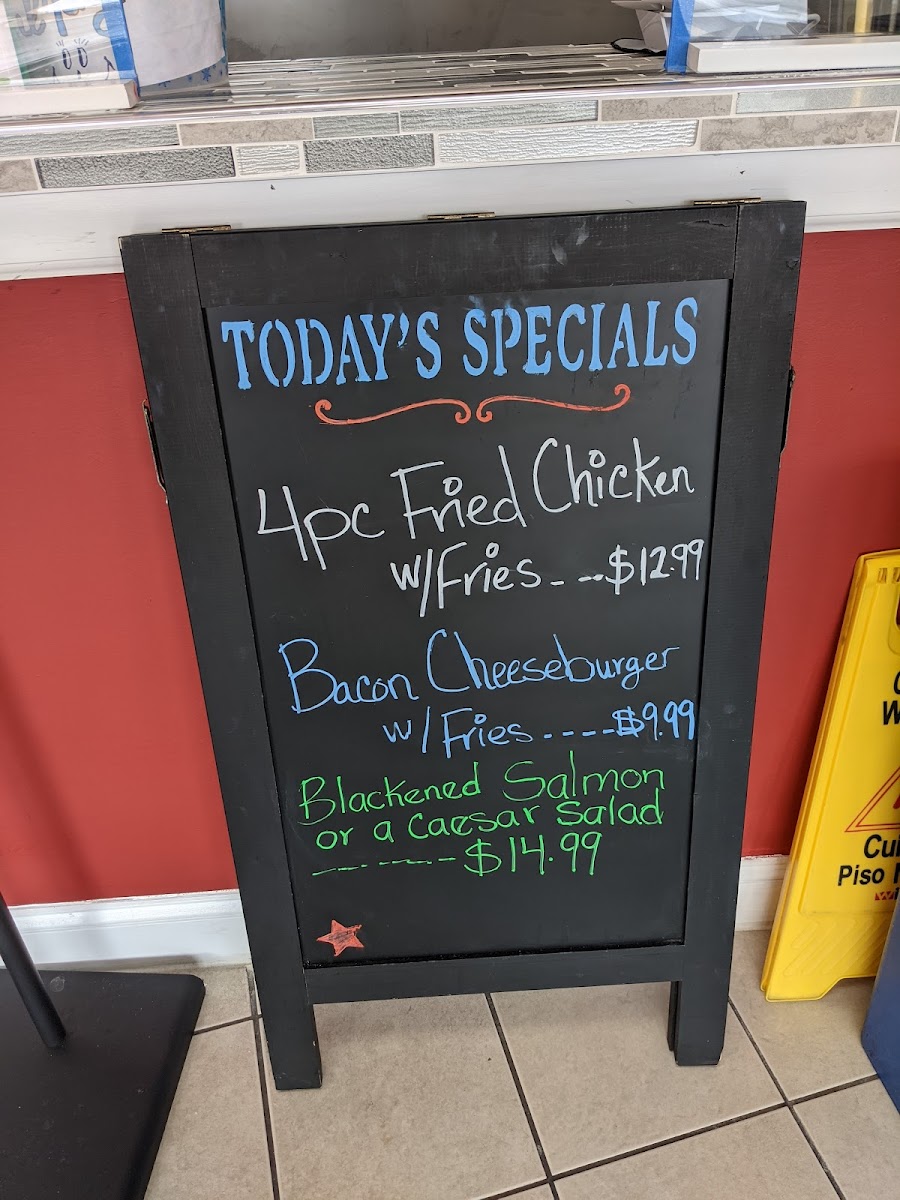 TODAY'S SPECIALS
4pc Fried Chicken
w/Fries_ _ _$12.99
Bacon Cheeseburger
w/Fries----$9.99
Blackened Salmon
or a Caesar Salad
------$14.99
Piso